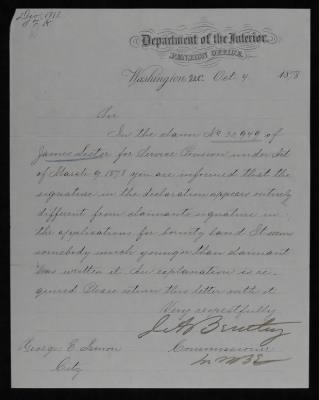 Department of the Interior,
PENSION OFFICE,
Washington, D.C. Oct 4 1878
Sir
In the claim No 32,949 of
James Lester for Service Pension under Act
of March 9, 1878 you are informed that the
signature in the declaration appears entirely
different from claimants signature in
the applications for bounty land It seems
somebody much younger than claimant
has written it An explanation is re-
quired Please return this letter with it
Very respectfully
J A Bentley
Commissioner
George E Lemon
City